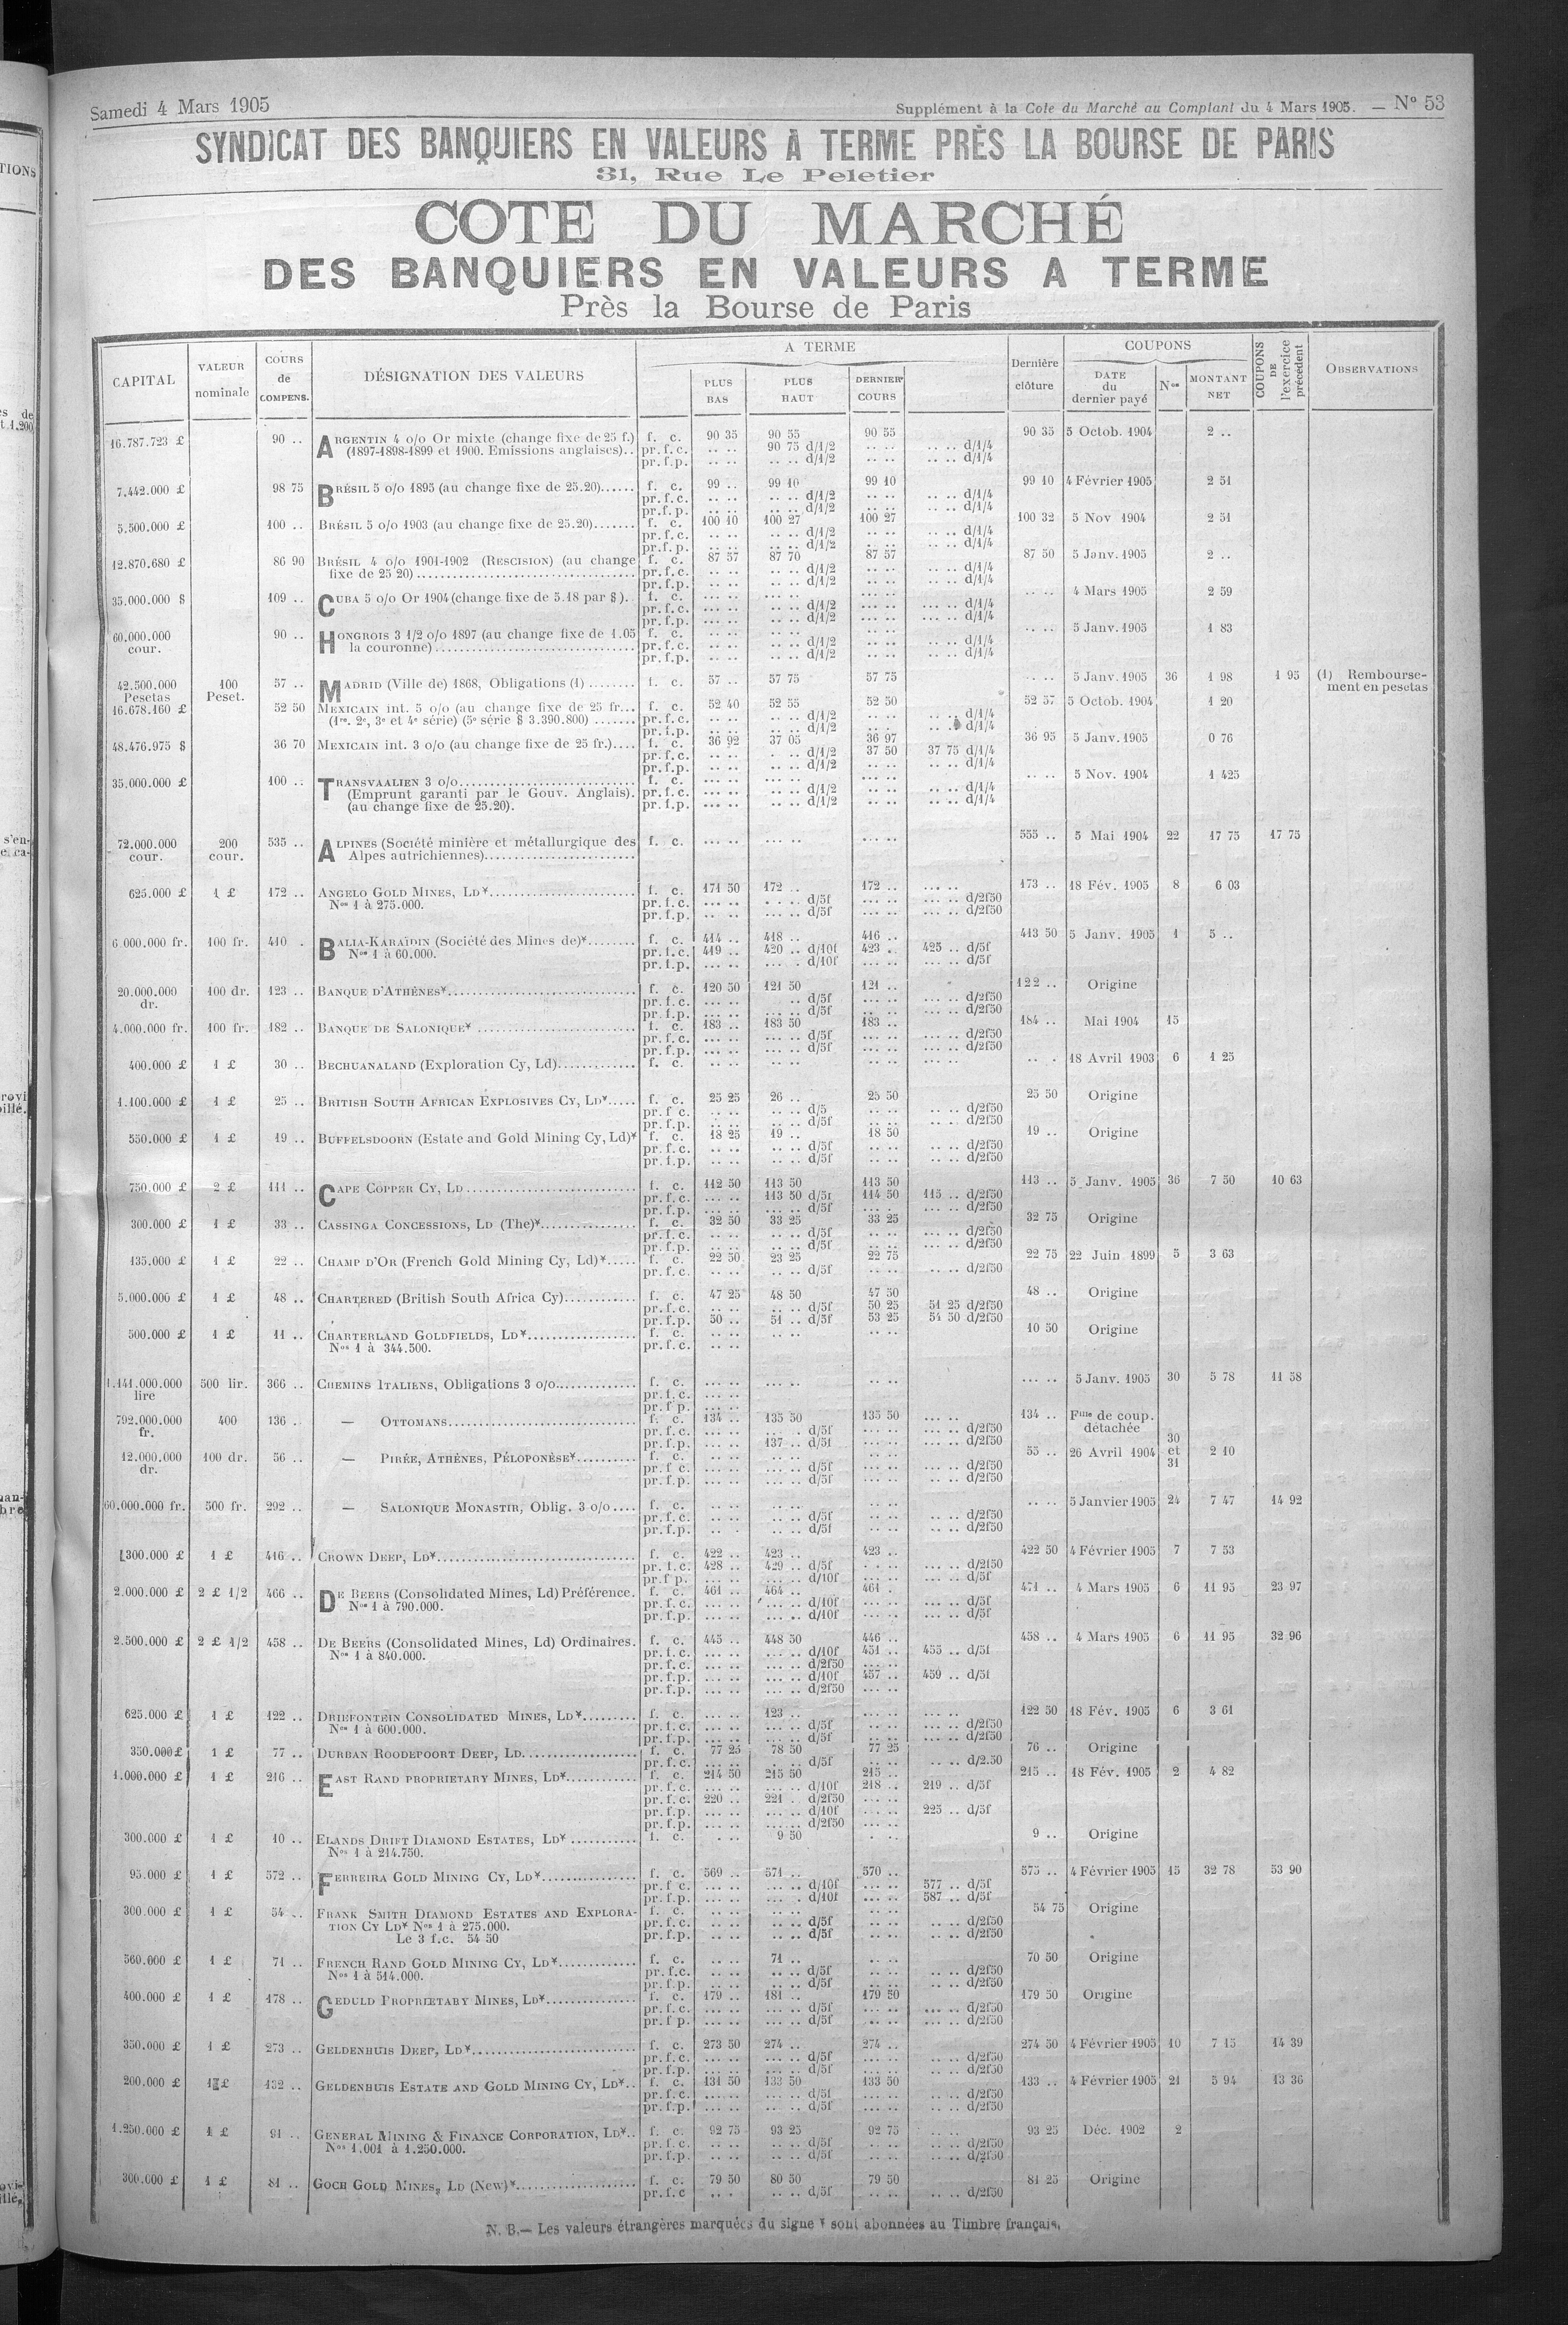 Samedi 4 Mars 1905
Supplément à la Cote du Marché au Comptant du 4 Mars 1905. — No 53
SYNDICAT DES BANQUIERS EN VALEURS A TERME PRÈS LA BOURSE DE PARIS
31, Rue Le Peletier
COTE DU MARCHÉ
DES BANQUIERS EN VALEURS A TERME
Près la Bourse de Paris
CAPITAL | VALEUR nominale | COURS de COMPENS. | DÉSIGNATION DES VALEURS | A TERME | PLUS BAS | PLUS HAUT | DERNIER COURS | Dernière clôture | COUPONS | DATE du dernier payé | Nos | MONTANT NET | COUPONS DE l'exercice précédent | OBSERVATIONS
16.787.723 £ 90 .. ARGENTIN 4 o/o Or mixte (change fixe de 25 f.) f. c. 90 35 90 55 90 55 90 35 5 Octob. 1904 2 ..
(1897-1898-1899 et 1900. Emissions anglaises).. pr. f. c. .. .. 90 75 d/1/2 .. .. .. .. d/1/4
pr. f. p. .. .. .. .. d/1/2 .. .. .. .. d/1/4
7.442.000 £ 98 75 BRÉSIL 5 o/o 1895 (au change fixe de 25.20)...... f. c. 99 .. 99 10 99 10 99 10 4 Février 1905 2 51
pr. f. c. .. .. .. .. d/1/2 .. .. .. .. d/1/4
pr. f. p. .. .. .. .. d/1/2 .. .. .. .. d/1/4
5.500.000 £ 100 .. BRÉSIL 5 o/o 1903 (au change fixe de 25.20)....... f. c. 100 10 100 27 100 27 100 32 5 Nov 1904 2 51
pr. f. c. .. .. .. .. d/1/2 .. .. .. .. d/1/4
pr. f. p. .. .. .. .. d/1/2 .. .. .. .. d/1/4
12.870.680 £ 86 90 BRÉSIL 4 o/o 1901-1902 (RESCISION) (au change f. c. 87 57 87 70 87 57 87 50 5 Janv. 1905 2 ..
fixe de 25 20) pr. f. c. .. .. .. .. d/1/2 .. .. .. .. d/1/4
pr. f. p. .. .. .. .. d/1/2 .. .. .. .. d/1/4
35.000.000 $ 109 .. CUBA 5 o/o Or 1904 (change fixe de 5.18 par $).. f. c. ... .. ... .. ... .. .. .. 4 Mars 1905 2 59
pr. f. c. ... .. .. .. d/1/2 ... .. ... .. d/1/4
pr. f. p. ... .. .. .. d/1/2 ... .. ... .. d/1/4
60.000.000 cour. 90 .. HONGROIS 3 1/2 o/o 1897 (au change fixe de 1.05 f. c. .. .. .. .. .. .. .. .. 5 Janv. 1905 1 83
la couronne) pr. f. c. .. .. .. .. d/1/2 .. .. .. .. d/1/4
pr. f. p. .. .. .. .. d/1/2 .. .. .. .. d/1/4
42.500.000 Pesetas 100 Peset. 57 .. MADRID (Ville de) 1868, Obligations (1) ........ f. c. 57 .. 57 75 57 75 .. .. 5 Janv. 1905 36 1 98 1 95 (1) Remboursement en pesetas
16.678.160 £ 52 50 MEXICAIN int. 5 o/o (au change fixe de 25 fr... f. c. 52 40 52 55 52 50 52 57 5 Octob. 1904 1 20
(1re. 2e, 3e et 4e série) (5e série $ 3.390.800) ....... pr. f. c. .. .. .. .. d/1/2 .. .. .. .. d/1/4
pr. f. p. .. .. .. .. d/1/2 .. .. .. .. d/1/4
48.476.975 $ 36 70 MEXICAIN int. 3 o/o (au change fixe de 25 fr.).... f. c. 36 92 37 05 36 97 36 95 5 Janv. 1905 0 76
pr. f. c. .. .. .. .. d/1/2 37 50 37 75 d/1/4
pr. f. p. .. .. .. .. d/1/2 .. .. .. .. d/1/4
35.000.000 £ 100 .. TRANSVAALIEN 3 o/o f. c. ... .. ... .. ... .. .. .. 5 Nov. 1904 1 425
(Emprunt garanti par le Gouv. Anglais). pr. f. c. ... .. .. .. d/1/2 .. .. .. .. d/1/4
(au change fixe de 25.20). pr. f. p. ... .. .. .. d/1/2 .. .. .. .. d/1/4
72.000.000 cour. 200 cour. 535 .. ALPINES (Société minière et métallurgique des f. c. ... .. ... .. ... .. 555 .. 5 Mai 1904 22 17 75 17 75
Alpes autrichiennes)
625.000 £ 1 £ 172 .. ANGELO GOLD MINES, LD¥ f. c. 171 50 172 .. 172 .. ... .. 173 .. 18 Fév. 1905 8 6 03
Nos 1 à 275.000. pr. f. c. ... .. . .. d/5f ... .. ... .. d/2f50
pr. f. p. .. .. ... .. d/5f ... .. ... .. d/2f50
6.000.000 fr. 100 fr. 410 . BALIA-KARAÏDIN (Société des Mines de)¥ f. c. 414 .. 418 .. 416 .. 413 50 5 Janv. 1905 1 5 ..
Nos 1 à 60.000. pr. f. c. 419 .. 420 .. d/10f 423 .. 425 .. d/5f
pr. f. p. ... .. ... . d/10f ... .. ... .. d/5f
20.000.000 dr. 100 dr. 123 .. BANQUE D'ATHÈNES¥ f. c. 120 50 121 50 121 .. 122 .. Origine
pr. f. c. ... .. .. d/5f ... .. ... .. d/2f50
pr. f. p. ... .. ... .. d/5f .. .. ... .. d/2f50
4.000.000 fr. 100 fr. 182 .. BANQUE DE SALONIQUE¥ f. c. 183 .. 183 50 183 .. 184 .. Mai 1904 15
pr. f. c. ... .. ... .. d/5f ... .. ... .. d/2f50
pr. f. p. ... .. ... .. d/5f ... .. ... .. d/2f50
400.000 £ 1 £ 30 .. BECHUANALAND (Exploration Cy, Ld) f. c. .. .. .. .. .. .. .. . 18 Avril 1903 6 1 25
1.100.000 £ 1 £ 25 .. BRITISH SOUTH AFRICAN EXPLOSIVES CY, LD¥..... f. c. 25 25 26 .. 25 50 25 50 Origine
pr. f c. .. .. .. .. d/5 .. .. .. .. d/2f50
pr. f. p. .. .. .. .. d/5f .. .. .. .. d/2f50
550.000 £ 1 £ 19 .. BUFFELSDOORN (Estate and Gold Mining Cy, Ld)¥ f. c. 18 25 19 .. 18 50 19 .. Origine
pr. f. c. .. .. .. .. d/5f .. .. .. .. d/2f50
pr. f. p. .. .. .. .. d/5f .. .. .. .. d/2f50
750.000 £ 2 £ 111 .. CAPE COPPER CY, LD f. c. 112 50 113 50 113 50 113 .. 5 Janv. 1905 36 7 50 10 63
pr. f. c. ... .. 113 50 d/5f 114 50 115 .. d/2f50
pr. f. p. ... .. ... .. d/5f ... . ... .. d/2f50
300.000 £ 1 £ 33 .. CASSINGA CONCESSIONS, LD (The)¥ f. c. 32 50 33 25 33 25 32 75 Origine
pr. f. c. .. .. .. .. d/5f .. .. ... .. d/2f50
pr. f. p. .. .. .. .. d/5f .. .. ... .. d/2f50
135.000 £ 1 £ 22 .. CHAMP D'OR (French Gold Mining Cy, Ld)¥..... f. c. 22 50 23 25 22 75 22 75 22 Juin 1899 5 3 63
pr. f. c. .. .. .. .. d/5f .. .. ... .. d/2f50
5.000.000 £ 1 £ 48 .. CHARTERED (British South Africa Cy) f. c. 47 25 48 50 47 50 48 .. Origine
pr. f. c. .. .. .. .. d/5f 50 25 51 25 d/2f50
pr. f. p. 50 .. 51 .. d/5f 53 25 54 50 d/2f50
500.000 £ 1 £ 11 .. CHARTERLAND GOLDFIELDS, LD¥ f. c. .. .. .. .. .. .. 10 50 Origine
Nos 1 à 344.500. pr. f. c. .. ..
1.141.000.000 lire 500 lir. 366 .. CHEMINS ITALIENS, Obligations 3 o/o f. c. ... .. ... .. .. .. ... .. 5 Janv. 1905 30 5 78 11 58
pr. f. c. ... ..
pr. f p. ... ..
792.000.000 fr. 400 136 .. — OTTOMANS f. c. 134 .. 135 50 135 50 ... .. 134 .. Flle de coup. détachée
pr. f. c. ... .. ... . d/5f ... .. ... .. d/2f50
pr. f. p. ... .. 137 .. d/5f ... .. ... .. d/2f50
12.000.000 dr. 100 dr. 56 .. — PIRÉE, ATHÈNES, PÉLOPONÈSE¥ f. c. ... .. .. .. .. .. 55 .. 26 Avril 1904 30 et 31 2 10
pr. f c. ... .. ... .. d/5f .. .. ... .. d/2f50
pr. f. p. ... .. ... .. d/5f .. .. .. .. d/2f50
60.000.000 fr. 500 fr. 292 .. — SALONIQUE MONASTIR, Oblig. 3 o/o.... f. c. .. .. .. .. .. .. .. .. 5 Janvier 1905 24 7 47 14 92
pr. f. c. .. .. .. .. d/5f .. .. .. .. d/2f50
pr. f. p. .. . .. .. d/5f .. .. .. .. d/2f50
300.000 £ 1 £ 416 .. CROWN DEEP, LD¥ f. c. 422 .. 423 .. 423 .. 422 50 4 Février 1905 7 7 53
pr. f. c. 428 .. 429 .. d/5f . .. .. ... .. d/2f50
pr. f p. ... .. ... .. d/10f ... .. ... .. d/5f
2.000.000 £ 2 £ 1/2 466 .. DE BEERS (Consolidated Mines, Ld) Préférence. f. c. 461 .. 464 .. 461 . 471 .. 4 Mars 1905 6 11 95 23 97
Nos 1 à 790.000. pr. f. c. ... .. ... .. d/10f ... .. ... .. d/5f
pr. f. p. ... .. ... .. d/10f ... .. ... .. d/5f
2.500.000 £ 2 £ 1/2 458 .. DE BEERS (Consolidated Mines, Ld) Ordinaires. f. c. 445 .. 448 50 446 .. 458 .. 4 Mars 1905 6 11 95 32 96
Nos 1 à 840.000. pr. f. c. ... .. ... .. d/10f 451 .. 455 .. d/5f
pr. f. c. ... .. ... .. d/2f50 ... ..
pr. f. p. ... .. ... .. d/10f 457 .. 459 .. d/5f
pr. f. p. ... .. ... .. d/2f50 ... ..
625.000 £ 1 £ 122 .. DRIEFONTEIN CONSOLIDATED MINES, LD¥ f. c. ... .. 123 .. ... .. ... .. 122 50 18 Fév. 1905 6 3 61
Nos 1 à 600.000. pr. f. c. ... .. ... .. d/5f .. .. ... .. d/2f50
pr. f. p. ... .. ... .. d/5f .. .. ... .. d/2f50
350.000 £ 1 £ 77 .. DURBAN ROODEPOORT DEEP, LD f. c. 77 25 78 50 77 25 76 .. Origine
pr. f. c. ... .. . .. d/5f .. .. .. .. d/2.50
1.000.000 £ 1 £ 216 .. EAST RAND PROPRIETARY MINES, LD¥ f. c. 214 50 215 50 215 .. 215 .. 18 Fév. 1905 2 4 82
pr. f. c. ... .. ... .. d/10f 218 .. 219 .. d/5f
pr. f. c. 220 .. 221 . d/2f50 ... ..
pr. f. p. ... .. ... .. d/10f ... .. 225 .. d/5f
pr. f. p. ... .. ... .. d/2f50 ... ..
300.000 £ 1 £ 10 .. ELANDS DRIFT DIAMOND ESTATES, LD¥ f. c. . .. 9 50 . .. 9 .. Origine
Nos 1 à 214.750.
95.000 £ 1 £ 572 .. FERREIRA GOLD MINING CY, LD¥ f. c. 569 .. 571 .. 570 .. 575 .. 4 Février 1905 15 32 78 53 90
pr. f c. ... .. ... .. d/10f ... .. 577 .. d/5f
pr. f. p. ... .. ... . d/10f ... .. 587 .. d/5f
300.000 £ 1 £ 54 .. FRANK SMITH DIAMOND ESTATES AND EXPLORA- f. c. .. .. .. .. .. .. 54 75 Origine
TION CY LD¥ Nos 1 à 275.000. pr. f. c. .. .. .. .. d/5f .. .. .. .. d/2f50
Le 3 f.c. 54 50 pr. f. p. .. .. .. .. d/5f .. .. .. .. d/2f50
560.000 £ 1 £ 71 .. FRENCH RAND GOLD MINING CY, LD¥ f. c. .. .. 71 .. .. .. 70 50 Origine
Nos 1 à 514.000. pr. f. c. .. .. .. .. d/5f .. .. .. .. d/2f50
pr. f. p. .. .. .. .. d/5f .. .. .. .. d/2f50
400.000 £ 1 £ 178 .. GEDULD PROPRIETARY MINES, LD¥ f. c. 179 .. 181 .. 179 50 179 50 Origine
pr. f. c. ... .. ... .. d/5f ... .. ... .. d/2f50
pr. f p. ... .. ... .. d/5f ... .. ... .. d/2f50
350.000 £ 1 £ 273 .. GELDENHUIS DEEP, LD¥ f. c. 273 50 274 .. 274 .. 274 50 4 Février 1905 10 7 15 14 39
pr. f. c. ... .. ... .. d/5f ... .. .. .. d/2f50
pr. f. p. ... .. ... .. d/5f ... .. .. .. d/2f50
200.000 £ 1 £ 132 .. GELDENHUIS ESTATE AND GOLD MINING CY, LD¥.. f. c. 131 50 133 50 133 50 133 .. 4 Février 1905 21 5 94 13 36
pr. f. c. ... .. ... .. d/5f ... .. .. .. d/2f50
pr. f. p. ... .. ... .. d/5f ... .. .. .. d/2f50
1.250.000 £ 1 £ 91 .. GENERAL MINING & FINANCE CORPORATION, LD¥.. f. c. 92 75 93 25 92 75 .. .. 93 25 Déc. 1902 2
Nos 1.001 à 1.250.000. pr. f. c. .. .. .. .. d/5f .. .. .. .. d/2f50
pr. f. p. .. .. .. .. d/5f .. .. .. .. d/2f50
300.000 £ 1 £ 81 .. GOCH GOLD MINES, LD (New)¥ f. c. 79 50 80 50 79 50 81 25 Origine
pr. f. c .. . .. .. d/5f .. .. .. .. d/2f50
N. B.— Les valeurs étrangères marquées du signe ¥ sont abonnées au Timbre français.